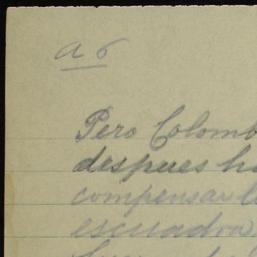 a 6
Pero Colomb
despues ha
compensar l
escuadra